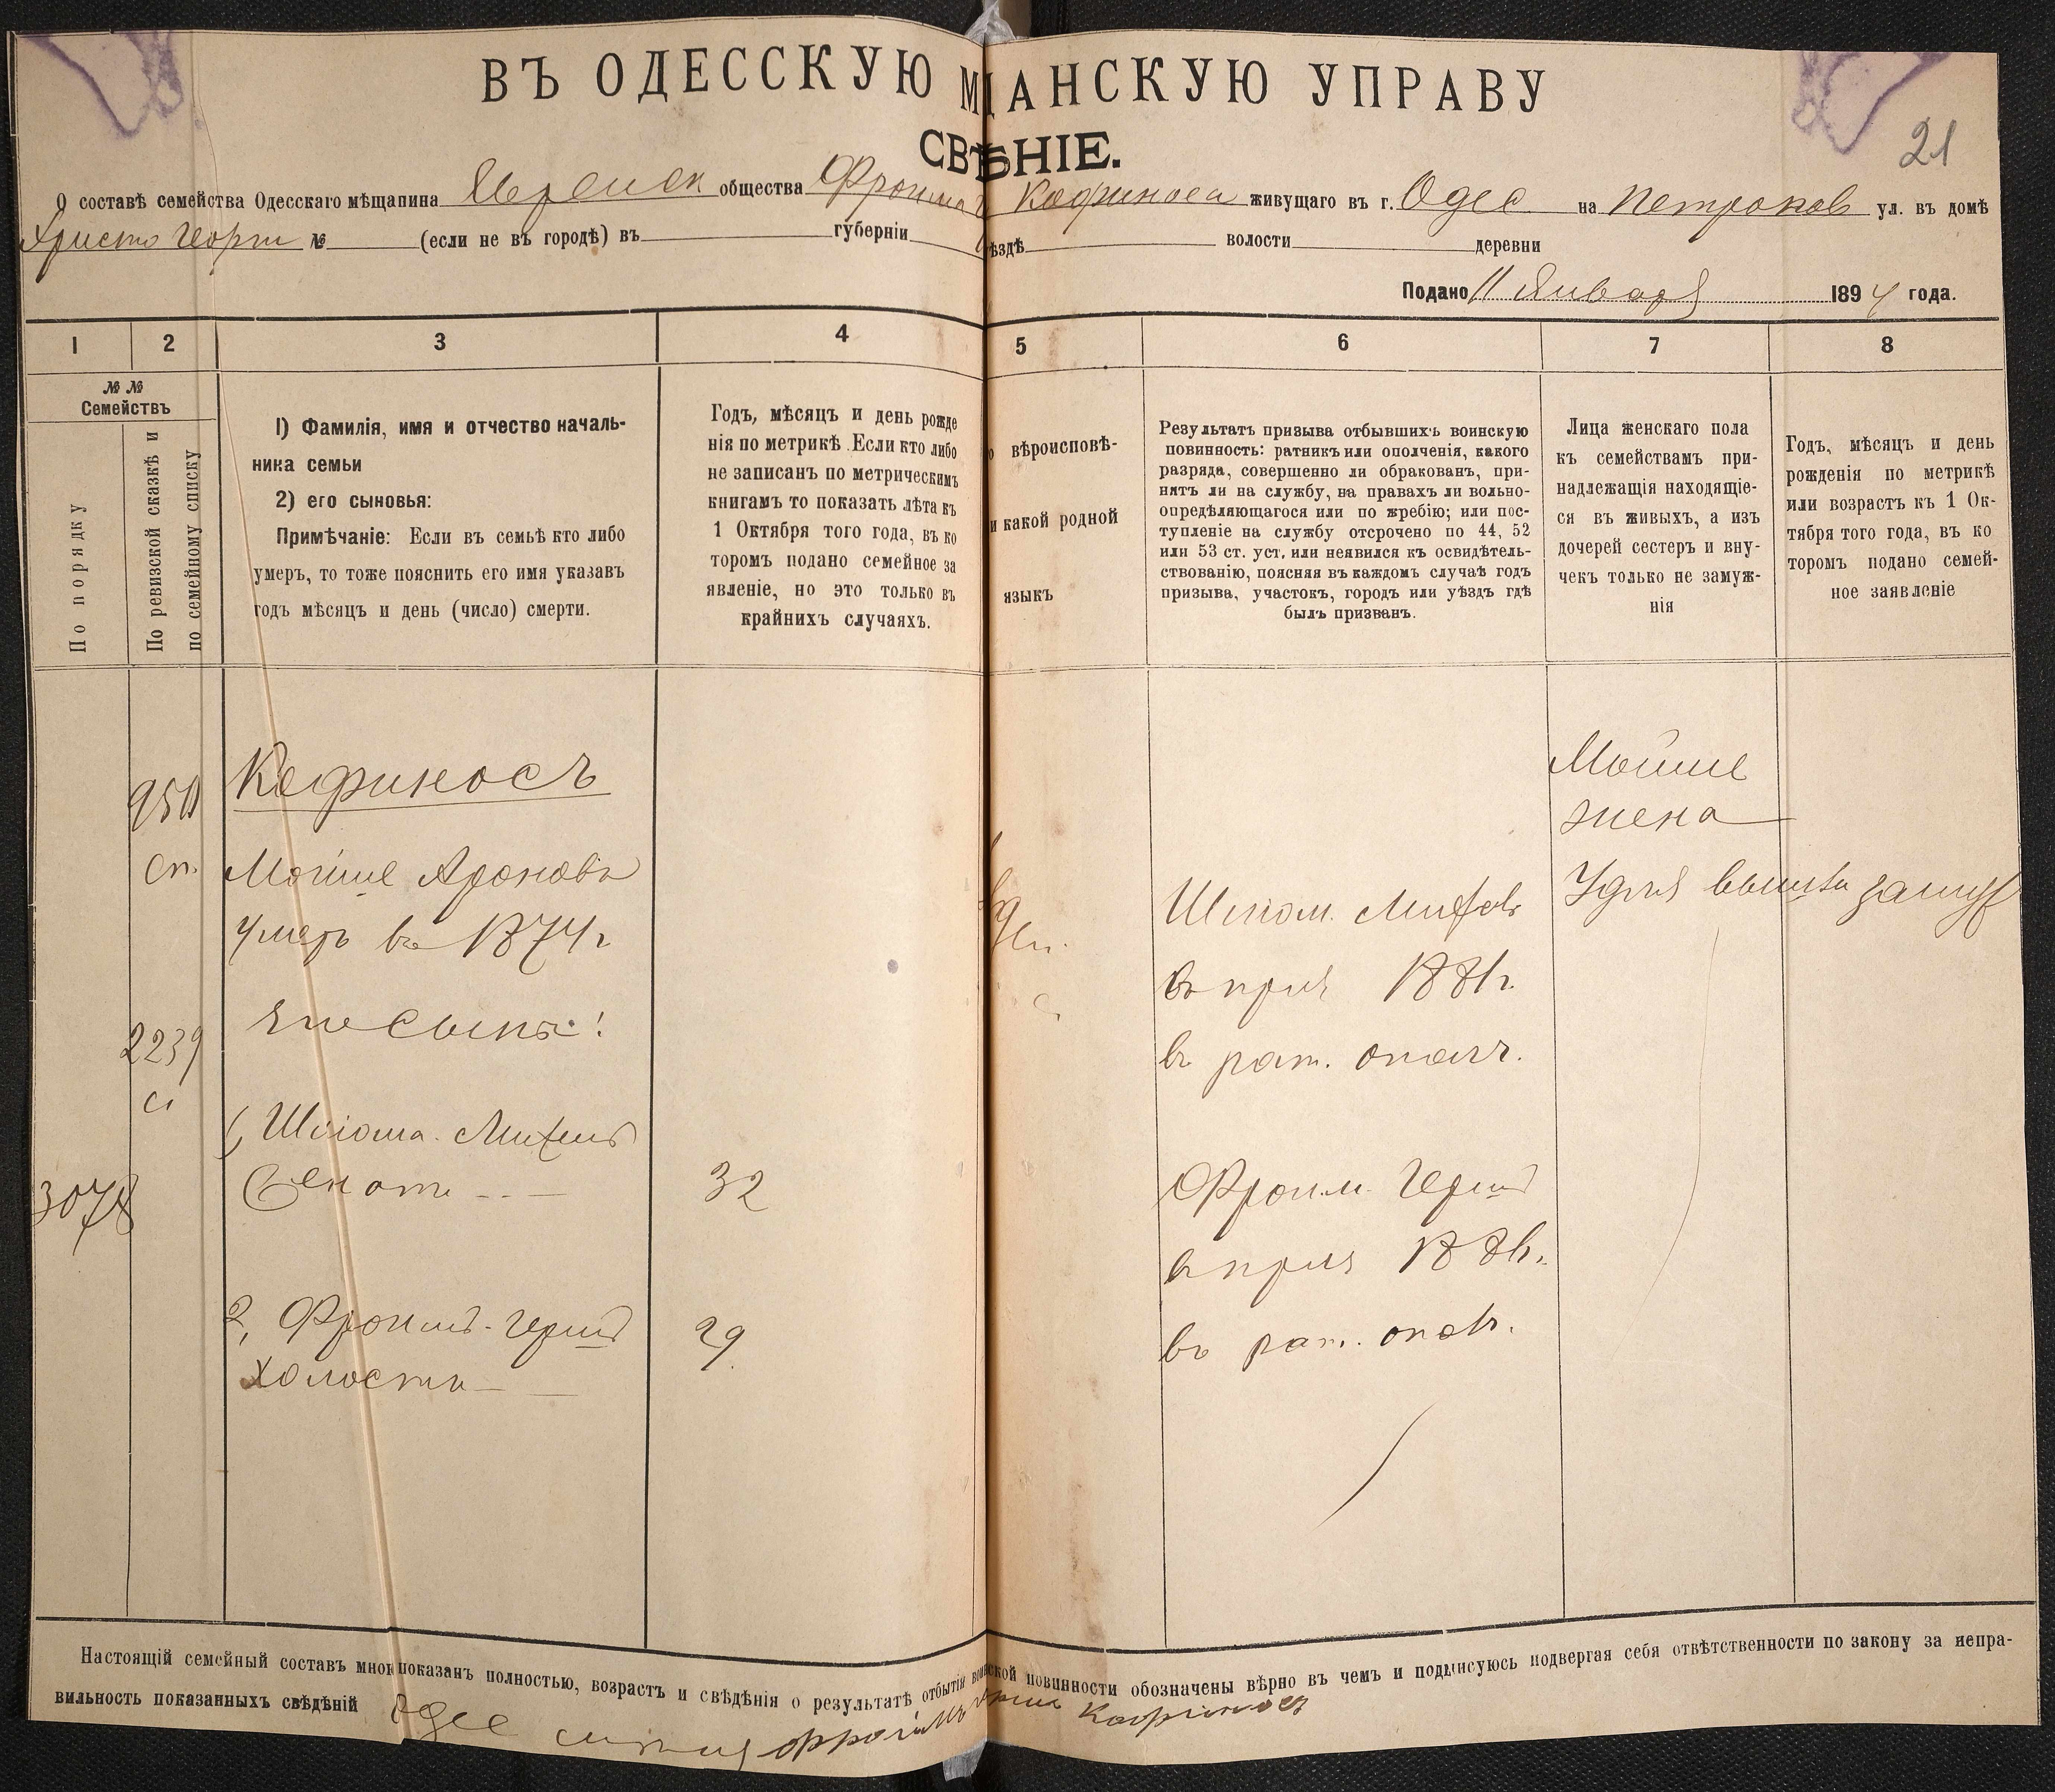 ВЪ ОДЕССКУЮ МѢЩАНСКУЮ УПРАВУ
СВѢНІЕ.
21
О составѣ семейства Одесскаго мѣщанина Еврейск общества Фроима Г Кофиноса живущаго въ г. Одес на Петроков ул. въ домѣ
Христо Георги № (если не въ городѣ) въ губерніи уѣздѣ волости деревни
Подано 11 Января 1894 года.
1 2 3 4 5 6 7 8
№ № Семействъ
По порядку
По ревизской сказкѣ и по семейному списку
1) Фамилія, имя и отчество началь-
ника семьи
2) его сыновья:
Примѣчаніе: Если въ семьѣ кто либо
умеръ, то тоже пояснить его имя указавъ
годъ мѣсяцъ и день (число) смерти.
Годъ, мѣсяцъ и день рожде
нія по метрикѣ. Если кто либо
не записанъ по метрическимъ
книгамъ то показать лѣта къ
1 Октября того года, въ ко
торомъ подано семейное за
явленіе, но это только въ
крайнихъ случаяхъ.
вѣроисповѣ-
и какой родной
языкъ
Результатъ призыва отбывшихъ воинскую
повинность: ратникъ или ополченія, какого
разряда, совершенно ли обракованъ, при-
нятъ ли на службу, на правахъ ли вольно-
опредѣляющагося или по жребію; или пос-
тупленіе на службу отсрочено по 44, 52
или 53 ст. уст. или неявился къ освидѣтель-
ствованію, поясняя въ каждомъ случаѣ годъ
призыва, участокъ, городъ или уѣздъ гдѣ
былъ призванъ.
Лица женскаго пола
къ семействамъ при-
надлежащія находящіе-
ся въ живыхъ, а изъ
дочерей сестеръ и вну-
чекъ только не замуж-
нія
Годъ, мѣсяцъ и день
рожденія по метрикѣ
или возрастъ къ 1 Ок-
тября того года, въ ко
торомъ подано семей-
ное заявленіе
Кефиносъ
сп.
Мойше Ароновъ
умеръ въ 1874 г
его сынъ:
2239
сп
1, Шлiома-Михель
Женатъ 32
3078
2, Фроимъ-Гершъ
Холостъ 29
Шлiом. Михель
въ приз 1881 г.
въ рат. ополч.
Фроим. Герш
въ приз
въ рат. опол.
Мойше
жена
Удля вышла замуж
Настоящій семейный составъ мною показанъ полностью, возрастъ и свѣдѣнія о результатѣ отбытія воинской повинности обозначены вѣрно въ чемъ и подписуюсь подвергая себя отвѣтственности по закону за непра-
вильность показанныхъ свѣдѣній Одес Фроимъ Герш Кофинос